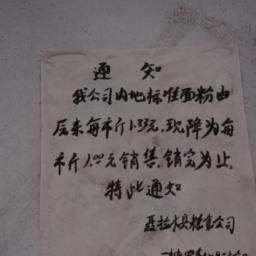 通知
我公司内地标准面粉由
原来每市斤1.33元,现降为每
市斤1.00元销售,销完为止,
特此通知
聂拉木县粮食公司